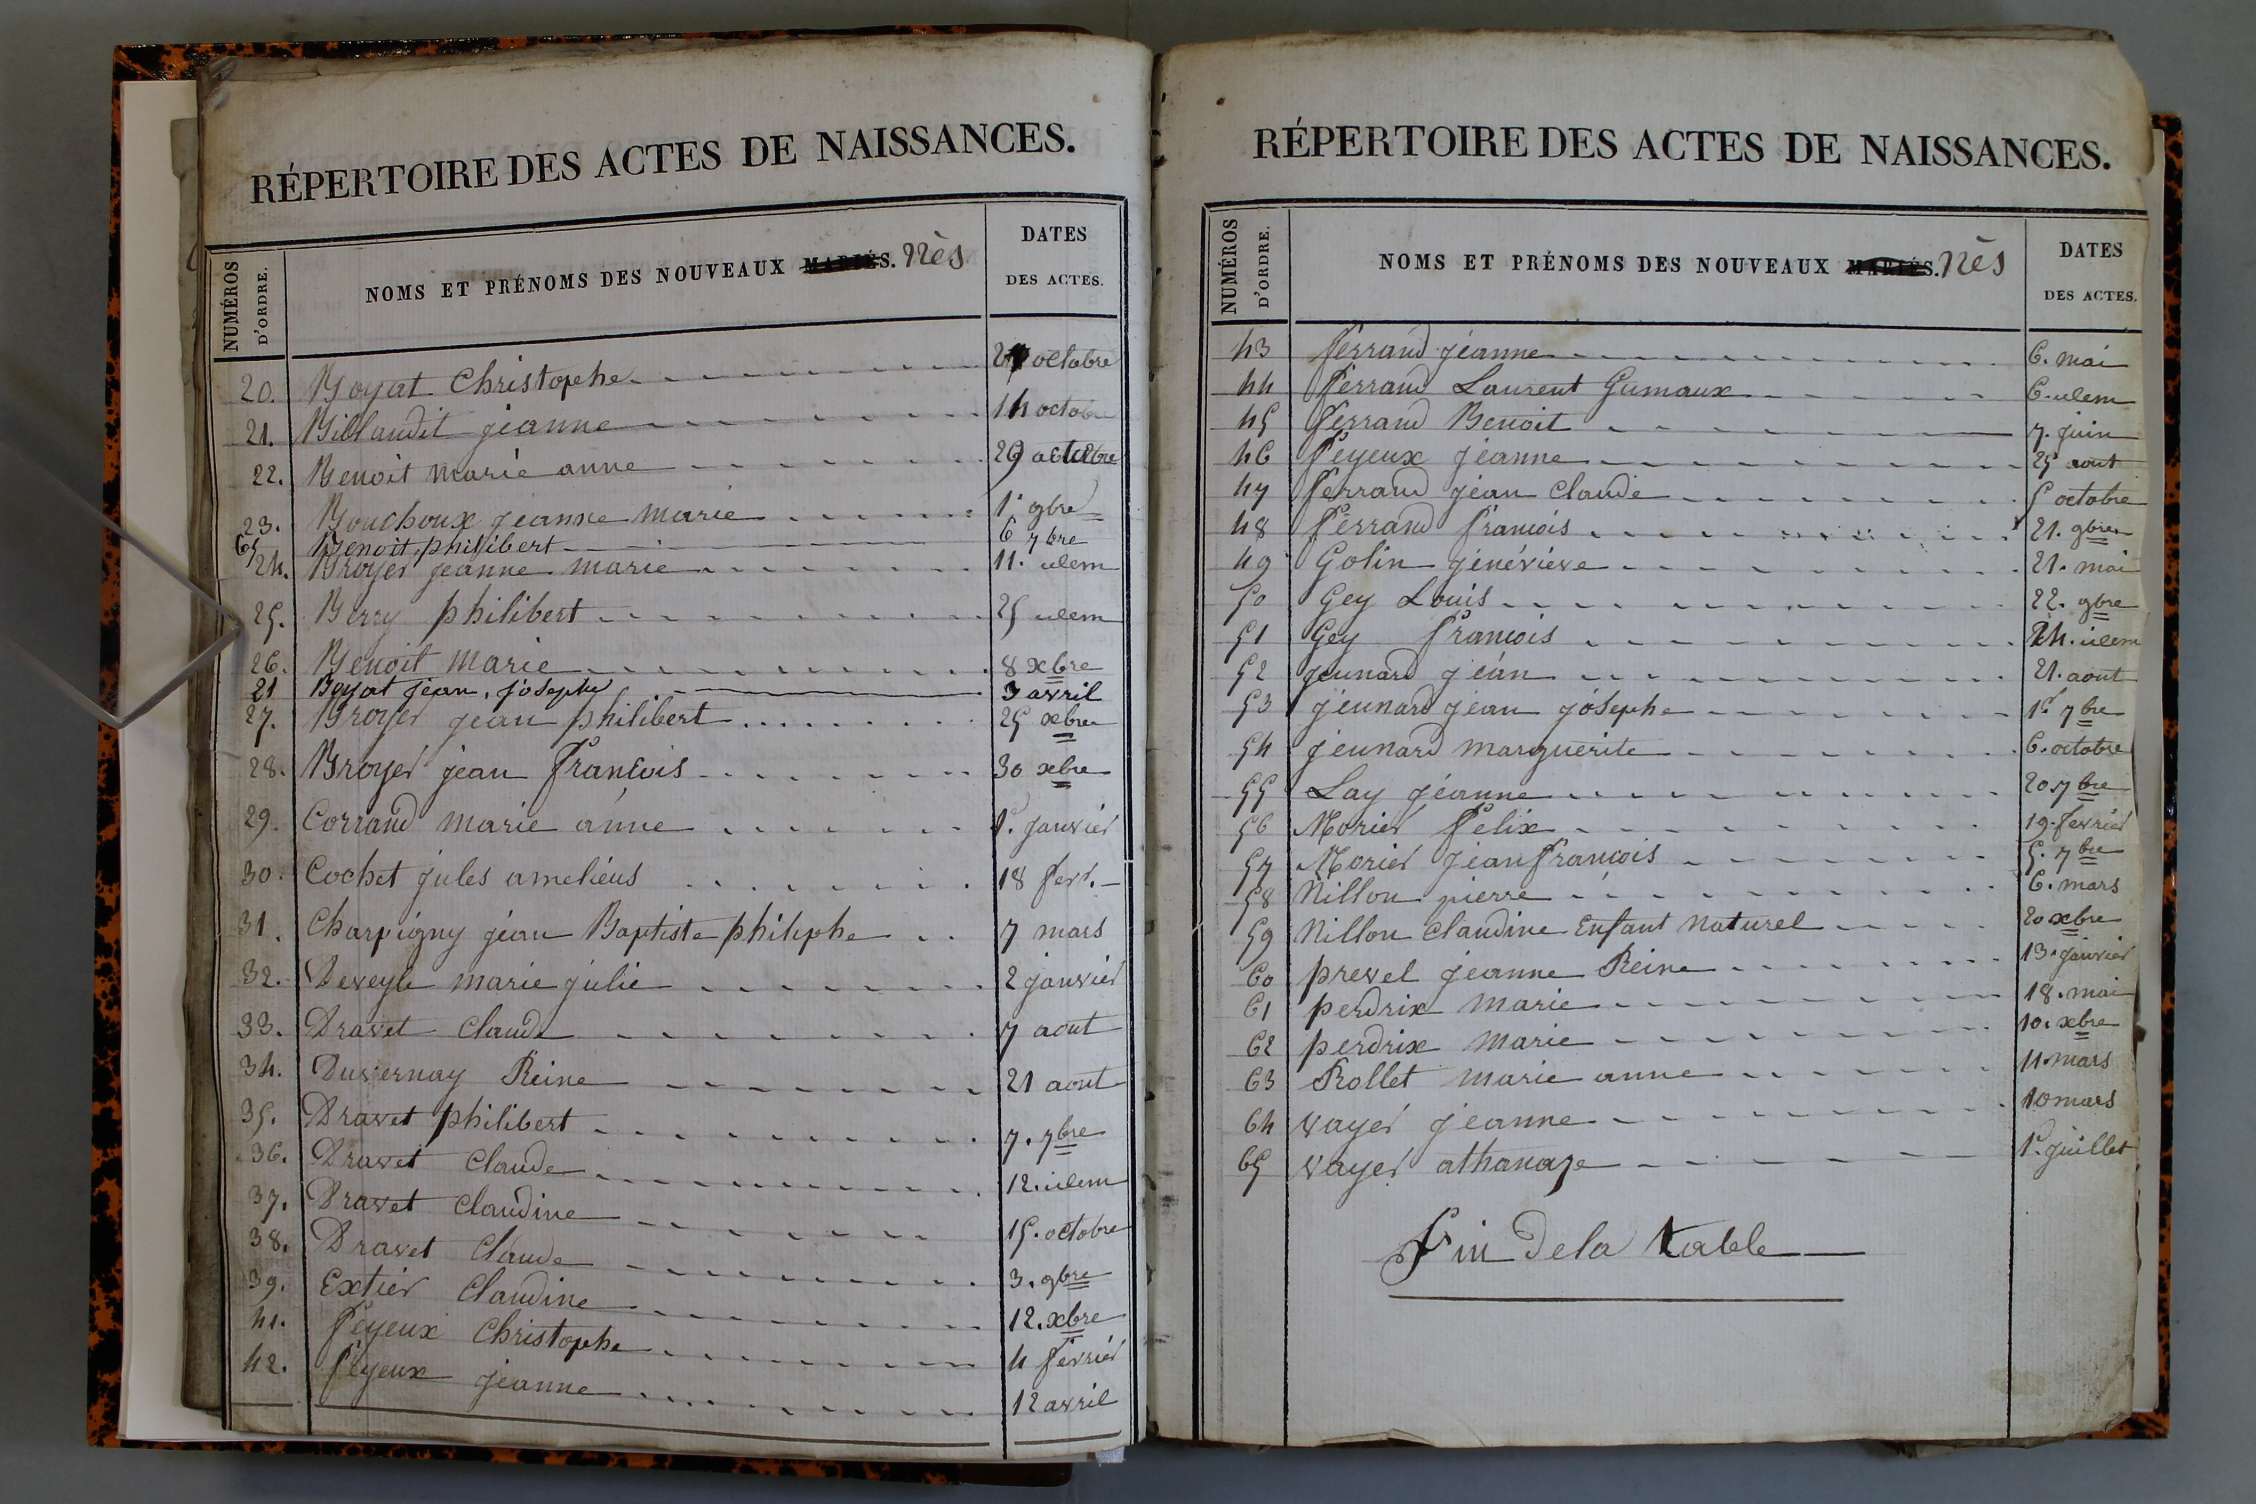 RÉPERTOIRE DES ACTES DE NAISSANCES.
NUMÉROS D'ORDRE. NOMS ET PRÉNOMS DES NOUVEAUX MARIÉS. nès DATES DES ACTES.
20. Boyat Christophe octobre
21. Billaudit jeanne 14 octobre
22. Benoit marie anne 29 octobre
23. Bouchoux jeanne marie 1r. 9bre
65 Benoit philibert 6 7bre
24. Broyer jeanne marie 11. idem
25. Berry philibert 25 idem
26. Benoit marie 8 xbre
21 Boyat jean, josephe 3 avril
27. Broyer jean philibert 25 xbre
28. Broyer jean francois 30 xbre
29. Corrand marie anne 1r. janvier
30. Cochet jules amelieus 18 fevr.
31. Charpigny jean Baptiste philiphe 7 mars
32. Deveyle marie julie 2 janvier
33. Dravet Claude 7 aout
34. Duvernay Reine 21 aout
35. Dravet philibert 7. 7bre
36. Dravet Claude 12. idem
37. Dravet Claudine 15. octobre
38. Dravet Claude 3. 9bre
39. Extier Claudine 12. xbre
41. feyeux Christophe 4 fevrier
42. feyeux jeanne 12 avril
RÉPERTOIRE DES ACTES DE NAISSANCES.
NUMÉROS D'ORDRE. NOMS ET PRÉNOMS DES NOUVEAUX MARIÉS. nès DATES DES ACTES.
43 ferrand jeanne 6. mai
44 ferrand Laurent Gumaux 6. idem
45 ferrand Benoit 7. juin
46 feyeux jeanne 25 aout
47 ferrand jean Claude 5 octobre
48 ferrand francois 21. 9bre
49 Golin généviève 21. mai
50 Gey Louis 22. 9bre
51 Gey francois 24. idem
52 jeunard jean 21. aout
53 jeunard jean josephe 1r 7bre
54 jeunard marguerite 6. octobre
55 Lay jeanne 20. 7bre
56 Morier felix 19. fevrier
57 Morier jean francois 5. 7bre
58 Nillon pierre 6. mars
59 Nillon Claudine Enfant Naturel 20 xbre
60 prevel jeanne Reine 13. janvier
61 perdrix marie 18. mai
62 perdrix marie 10. xbre
63 Rollet marie anne 11. mars
64 vayer jeanne 10 mars
65 vayer athanaze 1r. juillet
Fin De la table